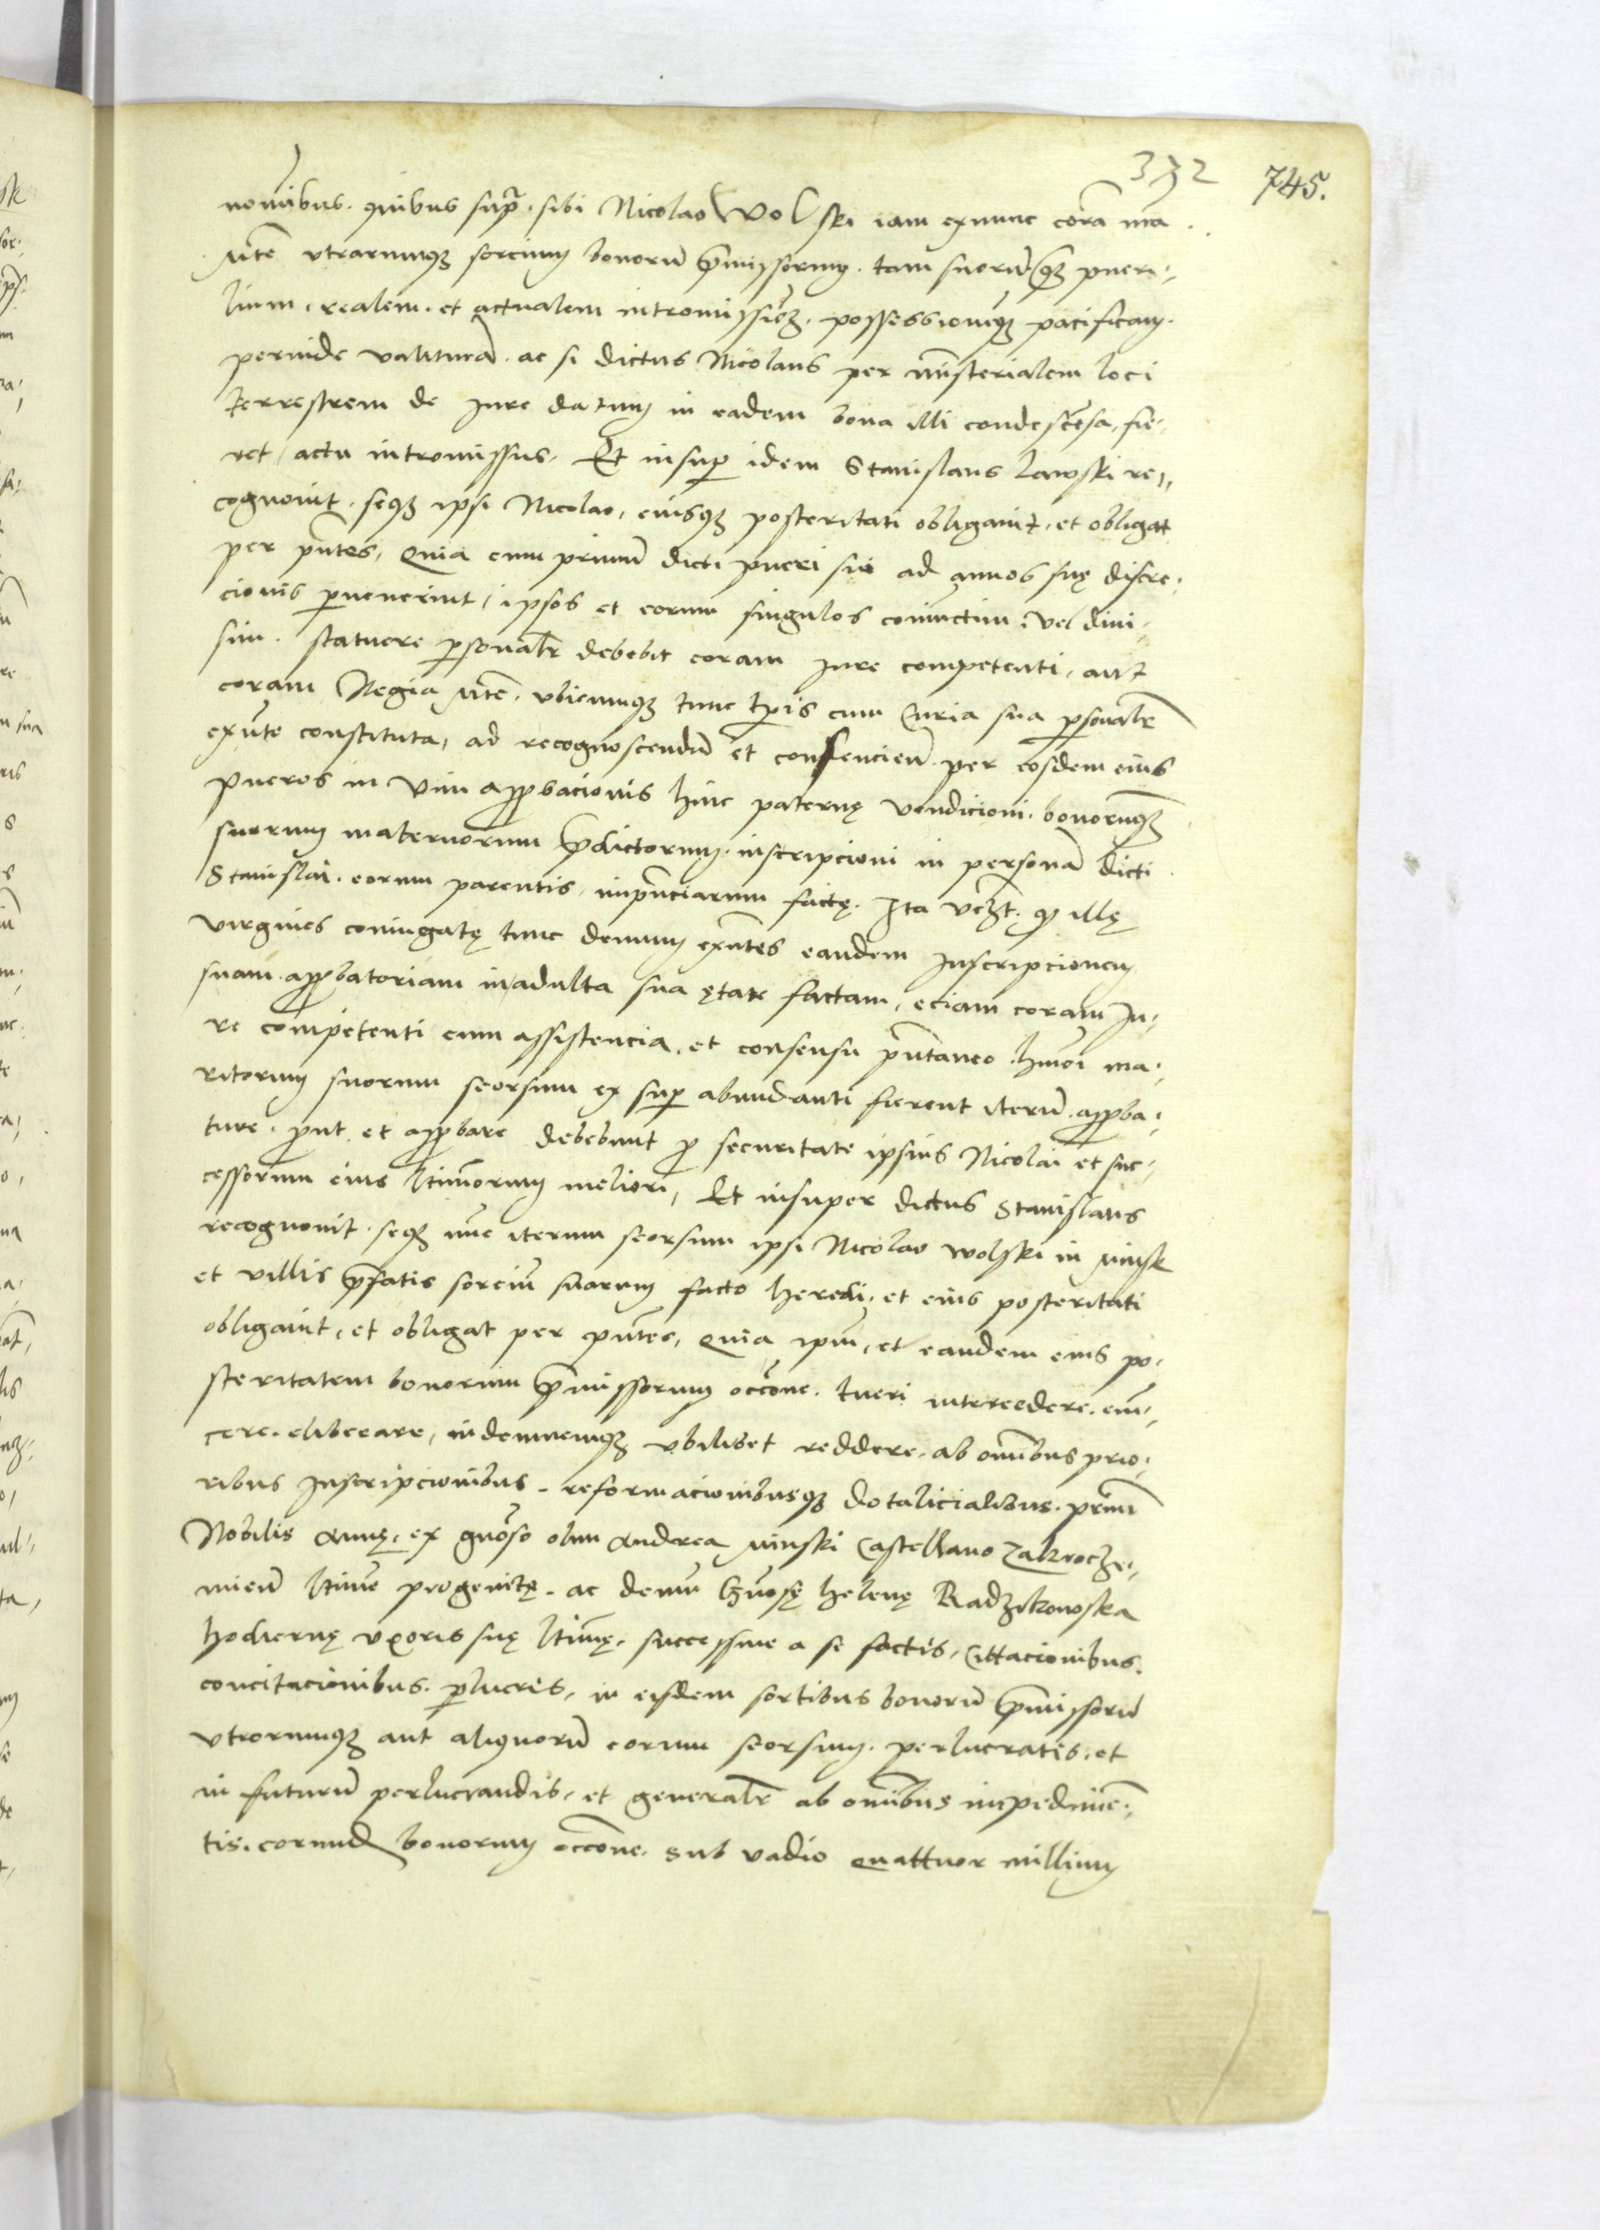 332 745.
nominibus. quibus supra. sibi Nicolao Wolski iam exnunc cora ma
utrarumqz sorcium bonoru pmissorum. tam suoru qz pueri-
lium. realem. et actualem intromissioēz. possessionemqz pacificam.
perinde valitura. ac si dictus Nicolaus per ministerialem loci
terrestrem de Jure datum in eadem bona illi condescensa, fie-
ret actu intromissus. Et insup idem Stanislaus Lawski re-
cognovit. seqz ipsi Nicolao, eiusqz posteritati obligavit, et obligat
per pntes, Quia cum primu dicti pueri sui ad annos suę discre-
cionis pvenerint, ipsos et eorum singulos coniunctim, vel divi-
sim. statuere psonalr debebit coram Jure competenti, aut
coram Regia Mte. ubicumqz tunc tpis cum Curia sua psonalr
exnte constituta, ad recognoscendu et consenciend. per eosdem eius
pueros in vim approbacionis huic paternę vendicioni. bonorumqz
suorum maternorum pdictorum. inscripcioni in persona dicti
Stanislai. eorum parentis, impnciarum factę. Ita vczt. qp illę
virgines coniugatę tunc demum exntes eandem Inscripcionem
suam approbatoriam in adulta sua ętate factam, eciam coram Ju-
re competenti cum assistencia, et consensu pntaneo hmoi ma-
ritorum suorum seorsum ex sup abundanti fierent iteru. approba-
ture. put et approbare debebunt p securitate ipsius Nicolai et suc-
cessorum eius ltimorum meliori, Et insuper dictus Stanislaus
recognovit. seqz nunc iterum seorsum ipsi Nicolao Wolski in Minsk
et villis pfatis sorciu suarum facto heredi. et eius posteritati
obligavit, et obligat per pntes, Quia ipm, et eandem eius po-
steritatem bonorum pmissorum occone. tueri intercedere. evin-
cere. elibeare, indemnemqz ubilibet reddere. ab omibus prio-
ribus Inscripcionibus. reformacionibusqz dotalicialibus. primu
Nobilis Annę, ex gnoso olim Andrea Minski Castellano Zakrocze-
mien ltime progenitę. ac demu Gnosę Helenę Radzikowska
hodiernę uxoris suę ltimę. successive a se factis, Citacionibus.
concitacionibus. plucris, in eisdem sortibus bonoru pmissoru
utrorumqz aut aliquoru eorum seorsum. perlucratis, et
in futuru perlucrandis, et generalr ab omibus impedime-
tis. eorumd bonorum occone. sub vadio Quattuor millium